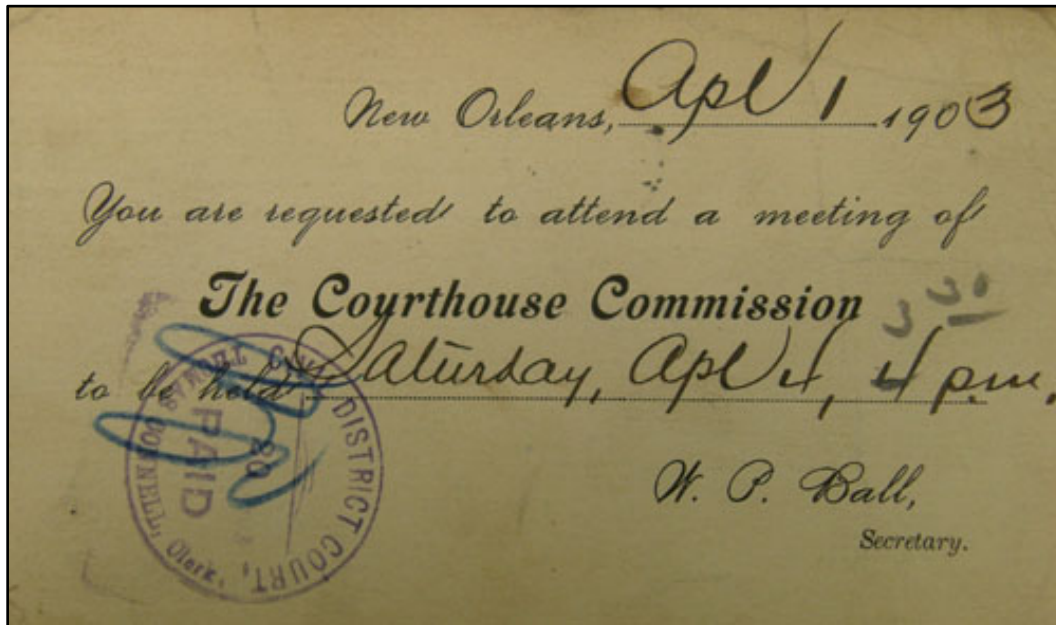 New Orleans, Apl 1 1903
You are requested to attend a meeting of
The Courthouse Commission
3 30
to be held Saturday, Apl 4, 4 p.m,
W. P. Ball,
Secretary.
CIVIL DISTRICT COURT,
THOMAS CONNELL, Clerk
20
PAID